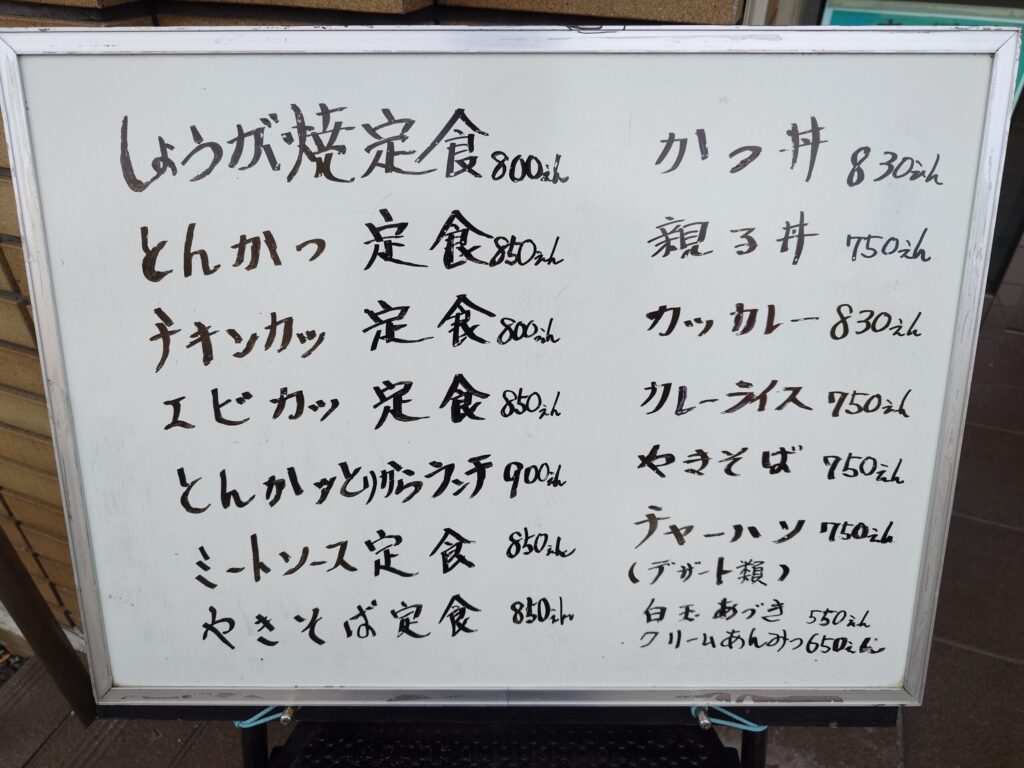 しょうが焼定食 800えん
とんかつ 定食 850えん
チキンカツ 定食 800えん
エビカツ 定食 850えん
とんかッとりからランチ 900えん
ミートソース定食 850えん
やきそば定食 850えん
かつ丼 830えん
親る丼 750えん
カツカレー 830えん
カレーライス 750えん
やきそば 750えん
チャーハン 750えん
(デザート類)
白玉あづき 550えん
クリームあんみつ 650えん